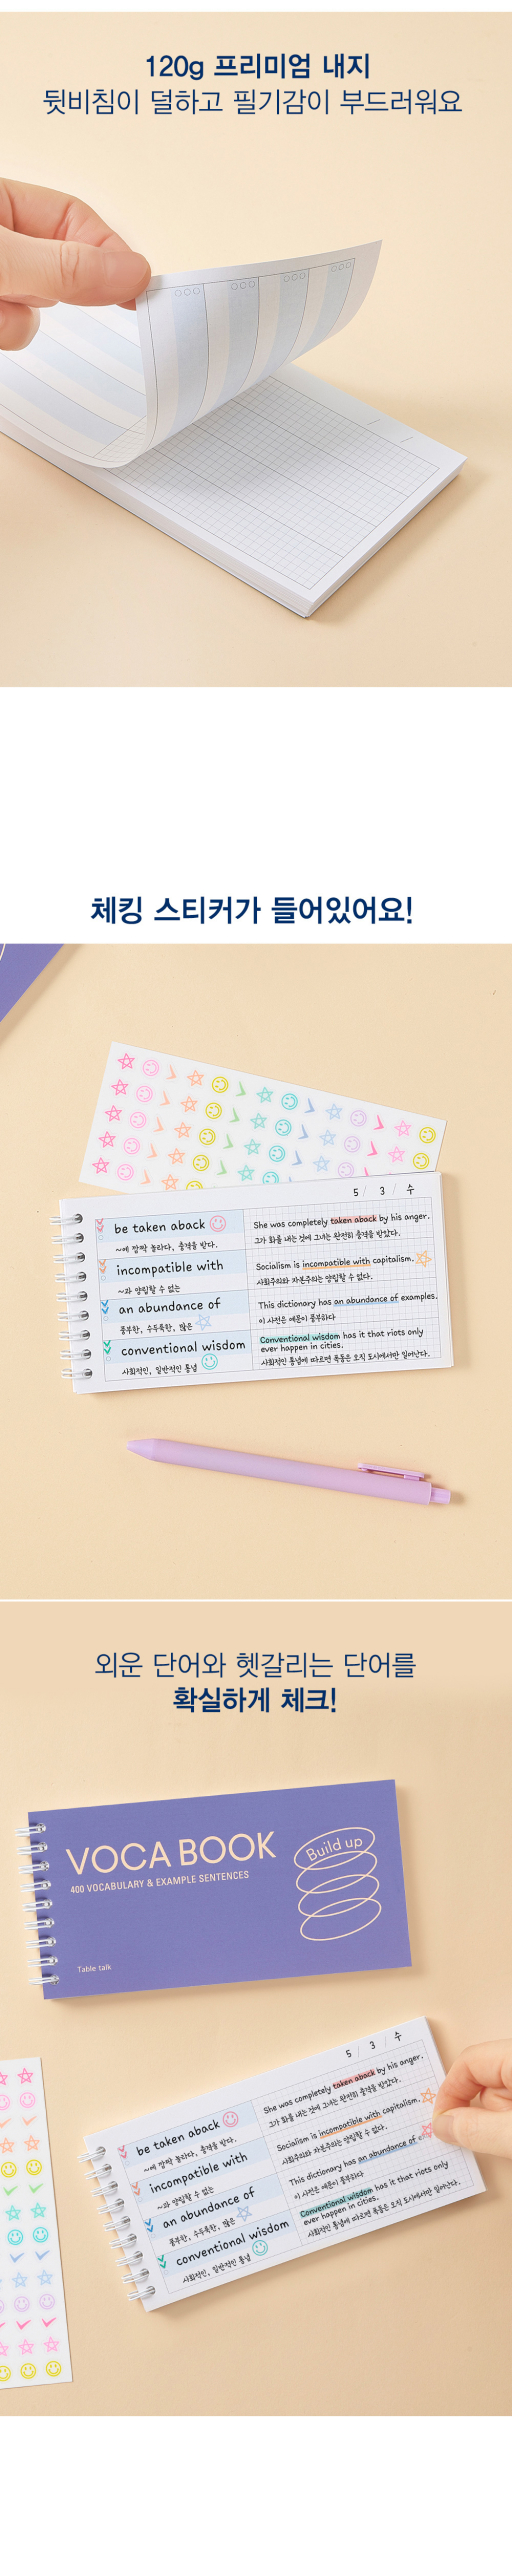 120g 프리미엄 내지
뒷비침이 덜하고 필기감이 부드러워요
체킹 스티커가 들어있어요!
5 / 3 / 수
be taken aback
~에 깜짝 놀라다, 충격을 받다.
She was completely taken aback by his anger.
그가 화를 내는 것에 그녀는 완전히 충격을 받았다.
incompatible with
~과 양립할 수 없는
Socialism is incompatible with capitalism.
사회주의와 자본주의는 양립할 수 없다.
an abundance of
풍부한, 수두룩한, 많은
This dictionary has an abundance of examples.
이 사전은 예문이 풍부하다
conventional wisdom
사회적인, 일반적인 통념
Conventional wisdom has it that riots only
ever happen in cities.
사회적인 통념에 따르면 폭동은 오직 도시에서만 일어난다.
외운 단어와 헷갈리는 단어를
확실하게 체크!
VOCA BOOK
400 VOCABULARY & EXAMPLE SENTENCES
Build up
Table talk
5 / 3 / 수
be taken aback
~에 깜짝 놀라다, 충격을 받다.
She was completely taken aback by his anger.
그가 화를 내는 것에 그녀는 완전히 충격을 받았다.
incompatible with
~과 양립할 수 없는
Socialism is incompatible with capitalism.
사회주의와 자본주의는 양립할 수 없다.
an abundance of
풍부한, 수두룩한, 많은
This dictionary has an abundance of
이 사전은 예문이 풍부하다
conventional wisdom
사회적인, 일반적인 통념
Conventional wisdom has it that riots only
ever happen in cities.
사회적인 통념에 따르면 폭동은 오직 도시에서만 일어난다.